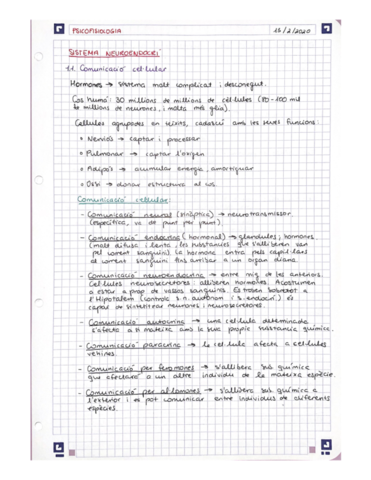 PSICOFISIOLOGIA 13/2/2020
SISTEMA NEUROENDOCRÍ
1.1. Comunicació cel·lular
Hormones → sistema molt complicat i desconegut.
Cos humà: 30 milions de milions de cèl·lules (80-100 mil
milions de neurones, i molta més glia).
Cèl·lules agrupades en teixits, cadascú amb les seves funcions:
• Nerviós → captar i processar
• Pulmonar → captar l'oxigen
• Adipós → acumular energia, amortiguar
• Ossi → donar estructura al cos.
Comunicació cel·lular:
- Comunicació neural (sinàptica) → neurotransmissor
(específica, va de punt per punt).
- Comunicació endocrina (hormonal) → glàndules; hormones.
(molt difusa i lenta, les substàncies que s'alliberen van
pel torrent sanguini). La hormona entra pels capil·lars
al torrent sanguini fins arribar a un òrgan diana.
- Comunicació neuroendocrina → entre mig de les anteriors.
Cèl·lules neurosecretores: allibera hormones. Acostumen
a estar a prop de vasos sanguinis. Es troben sobretot a
l'Hipotàlem (controla s.n. autònom i s. endocrí). És
capaç de sintetitzar neurones i neurosecretores.
- Comunicació autocrina → una cèl·lula determinada
s'afecta a ti mateixa amb la seva pròpia substància química.
- Comunicació paracrina → la cèl·lula afecta a cèl·lules
veïnes.
- Comunicació per feromones → s'allibera sus. química
que afectarà a un altre individu de la mateixa espècie.
- Comunicació per al·lomones → s'allibera sus. química a
l'exterior i es pot comunicar entre individus de diferents
espècies.